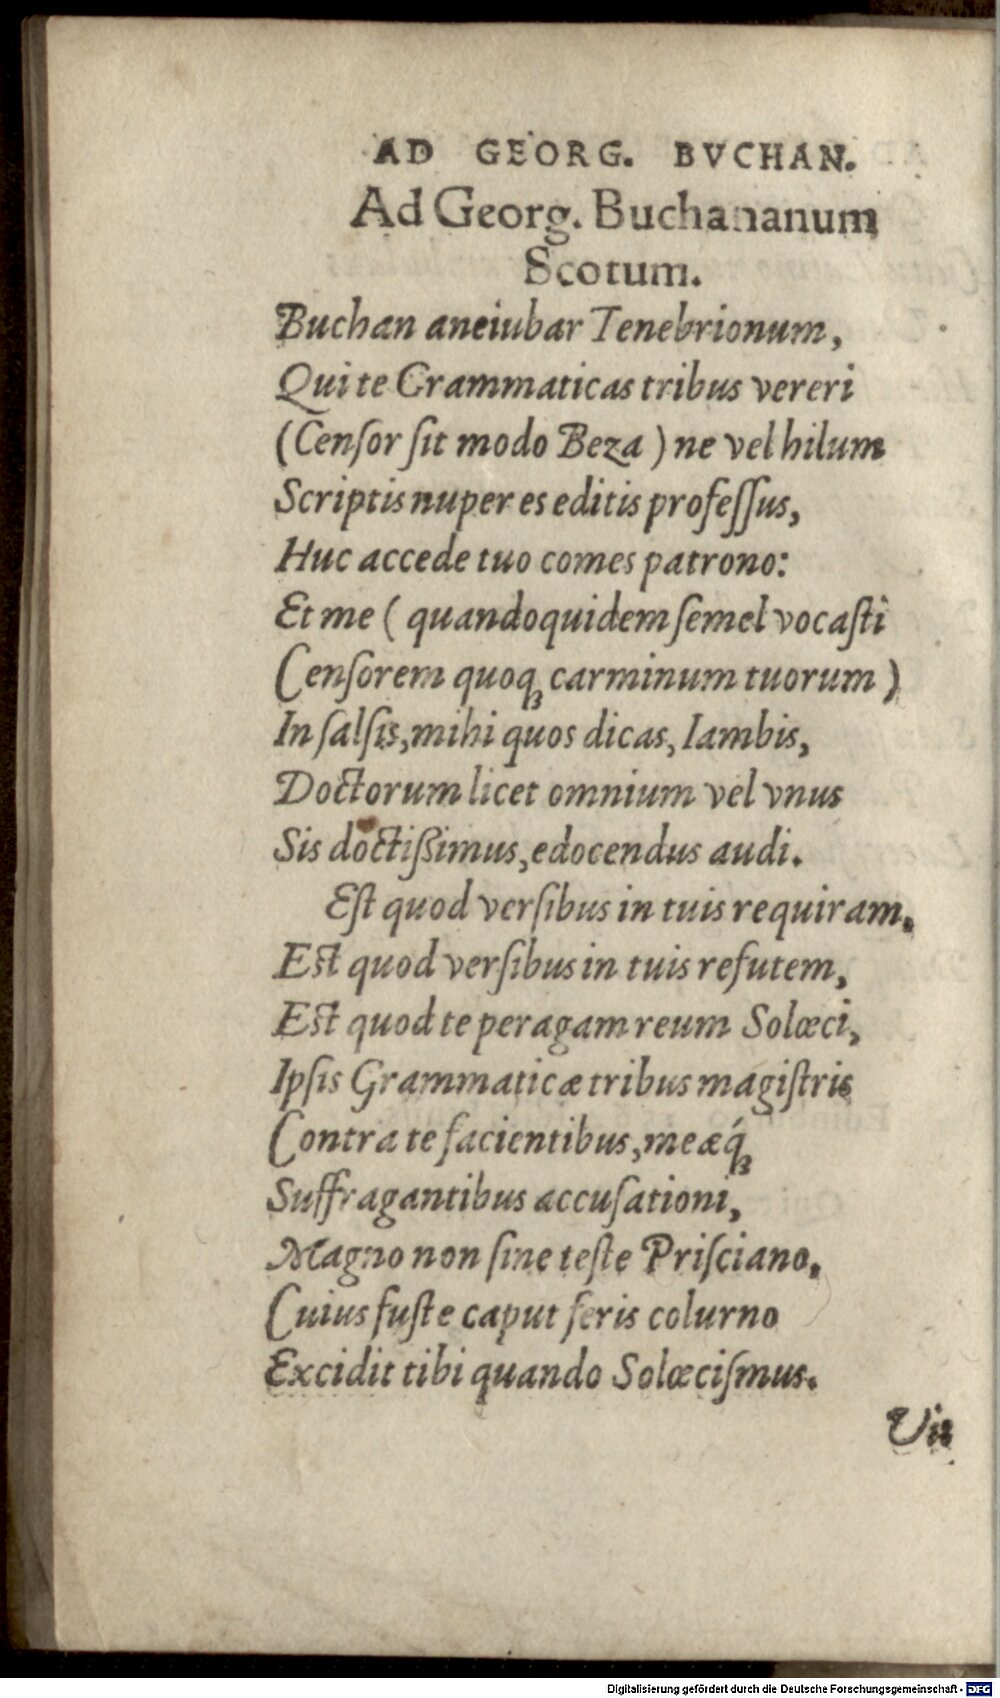 AD GEORG. BVCHAN.
Ad Georg. Buchananum
Scotum.
Buchan aneiubar Tenebrionum,
Qui te Grammaticas tribus vereri
(Cenſor ſit modo Beza) ne vel hilum
Scriptis nuper es editis profeſſus,
Huc accede tuo comes patrono:
Et me (quandoquidem ſemel vocaſti
Cenſorem quoqꝫ carminum tuorum)
In ſalſis, mihi quos dicas, Iambis,
Doctorum licet omnium vel vnus
Sis doctißimus, edocendus audi.
Eſt quod verſibus in tuis requiram,
Eſt quod verſibus in tuis refutem,
Eſt quod te peragam reum Solœci,
Ipſis Grammaticæ tribus magiſtris
Contra te facientibus, meæq́ꝫ
Suffragantibus accuſationi,
Magno non ſine teſte Priſciano,
Cuius fuſte caput feris colurno
Excidit tibi quando Solœciſmus.
Vis
Digitalisierung gefördert durch die Deutsche Forschungsgemeinschaft - DFG